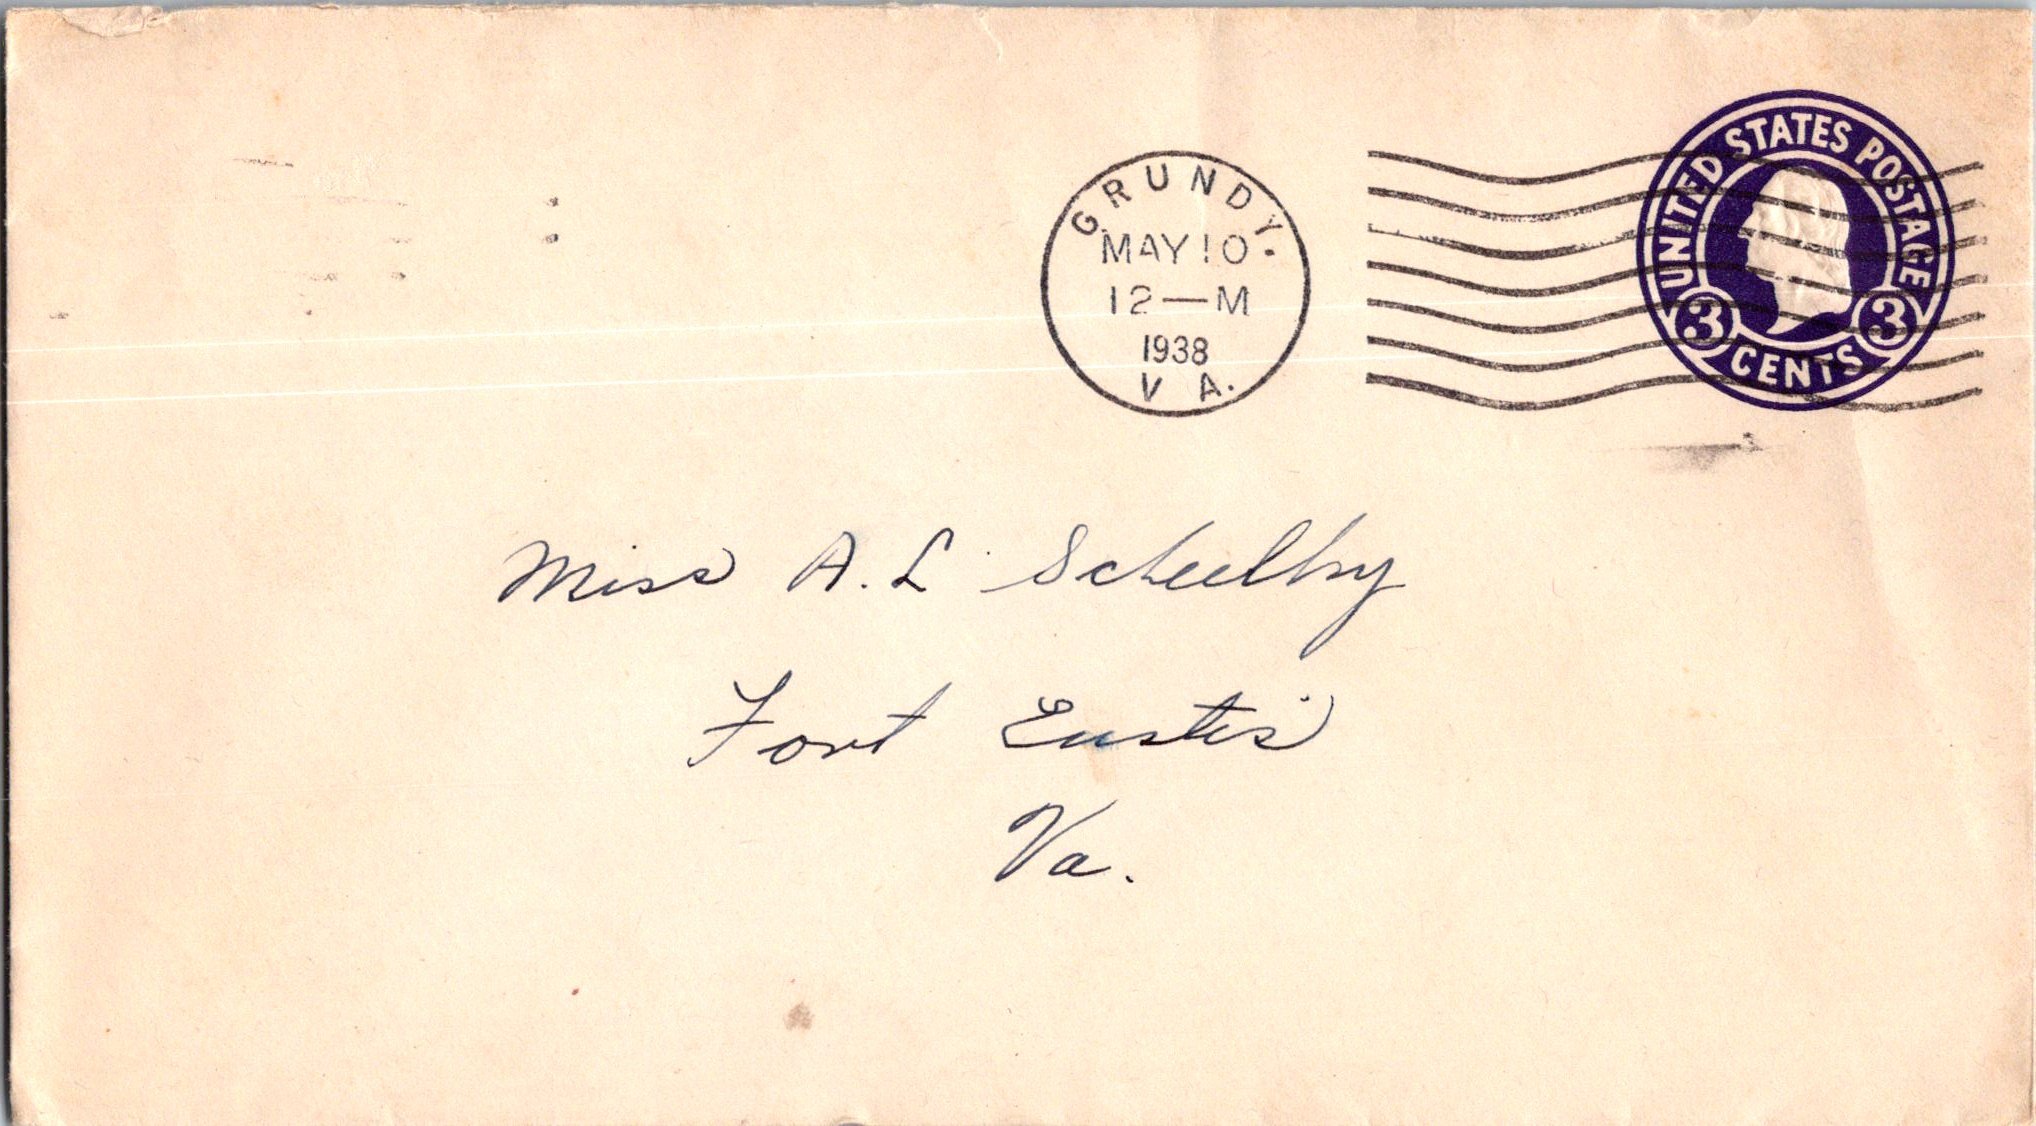 UNITED STATES POSTAGE
3 CENTS 3
GRUNDY.
MAY 10
12—M
1938
VA.
Miss A. L
Fort Eustis
Va.